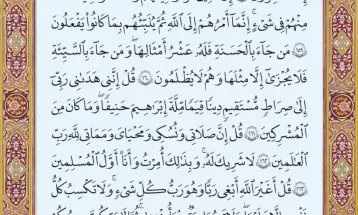 مِنْهُمْ فِي شَيْءٍ ۚ إِنَّمَا أَمْرُهُمْ إِلَى ٱللَّهِ ثُمَّ يُنَبِّئُهُم بِمَا كَانُوا۟ يَفْعَلُونَ
١٥٩ مَن جَآءَ بِٱلْحَسَنَةِ فَلَهُۥ عَشْرُ أَمْثَالِهَا ۖ وَمَن جَآءَ بِٱلسَّيِّئَةِ
فَلَا يُجْزَىٰٓ إِلَّا مِثْلَهَا وَهُمْ لَا يُظْلَمُونَ ١٦٠ قُلْ إِنَّنِى هَدَىٰنِى رَبِّىٓ
إِلَىٰ صِرَٰطٍ مُّسْتَقِيمٍ دِينًا قِيَمًا مِّلَّةَ إِبْرَٰهِيمَ حَنِيفًا ۚ وَمَا كَانَ مِنَ
ٱلْمُشْرِكِينَ ١٦١ قُلْ إِنَّ صَلَاتِى وَنُسُكِى وَمَحْيَاىَ وَمَمَاتِى لِلَّهِ رَبِّ
ٱلْعَٰلَمِينَ ١٦٢ لَا شَرِيكَ لَهُۥ ۖ وَبِذَٰلِكَ أُمِرْتُ وَأَنَا۠ أَوَّلُ ٱلْمُسْلِمِينَ
١٦٣ قُلْ أَغَيْرَ ٱللَّهِ أَبْغِى رَبًّا وَهُوَ رَبُّ كُلِّ شَىْءٍ ۚ وَلَا تَكْسِبُ كُلُّ